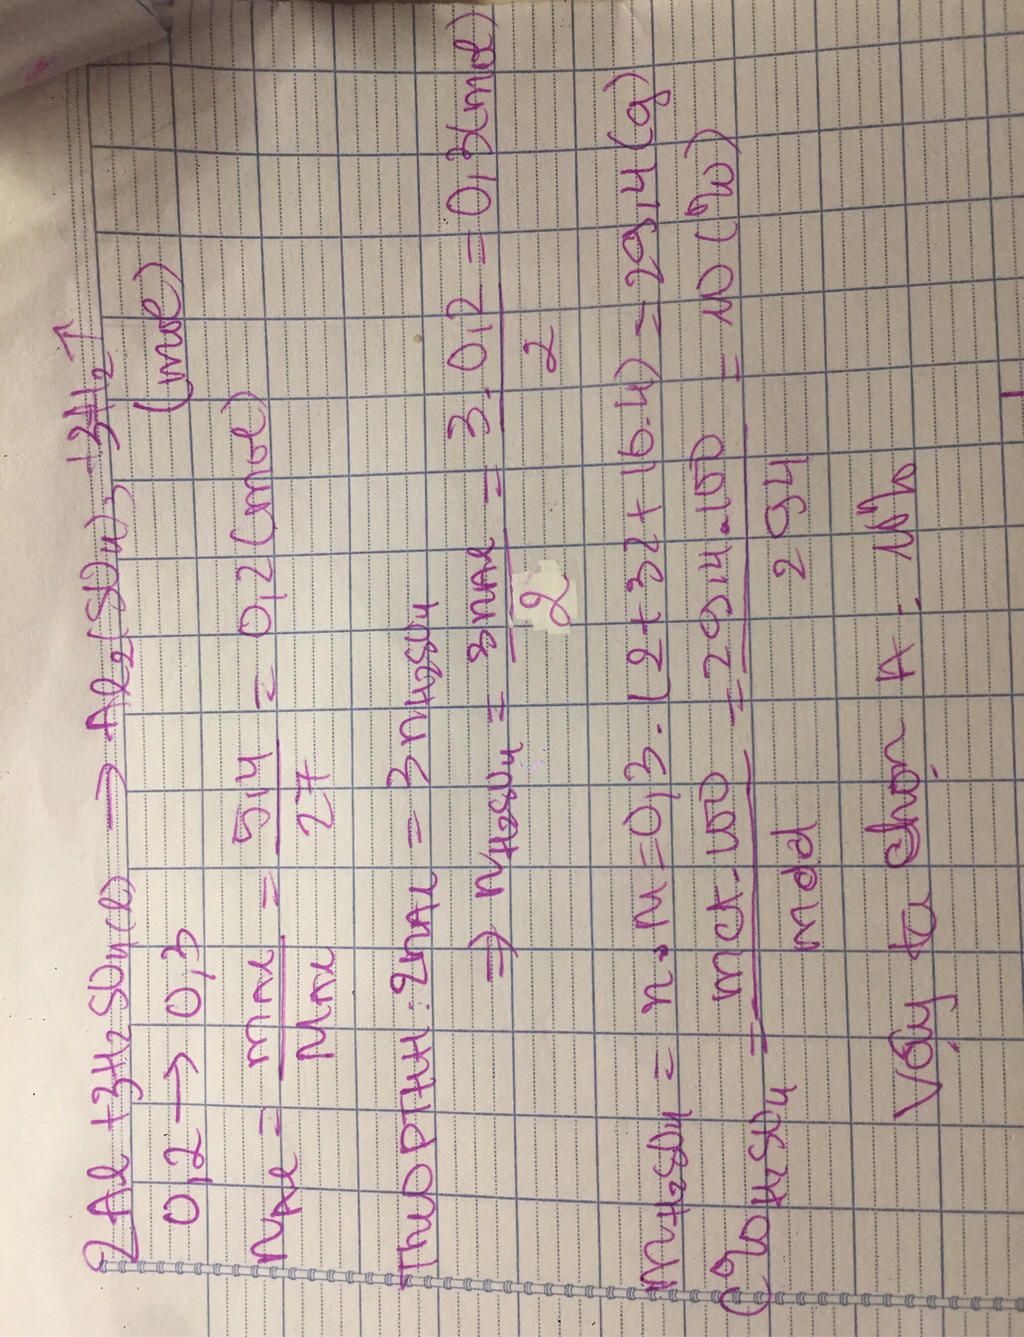 2Al + 3H2SO4(l) → Al2(SO4)3 + 3H2↑
0,2 → 0,3 (mol)
nAl = mAl/MAl = 5,4/27 = 0,2 (mol)
Theo PTHH: 2nAl = 3nH2SO4
⇒ nH2SO4 = 3nAl/2 = 3.0,2/2 = 0,3 (mol)
mH2SO4 = n.M = 0,3.(2+32+16.4) = 29,4 (g)
C%H2SO4 = mct.100/mdd = 29,4.100/294 = 10 (%)
Vậy ta chọn A: 10%